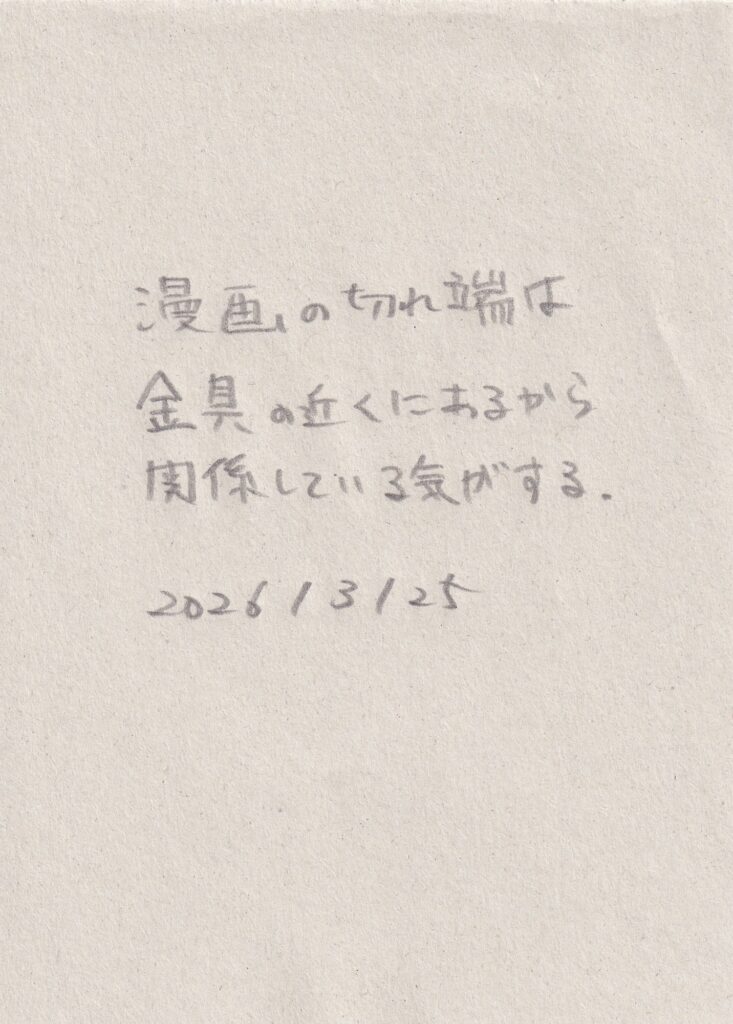 漫画の切れ端は
金具の近くにあるから
関係している気がする.
2026/3/25